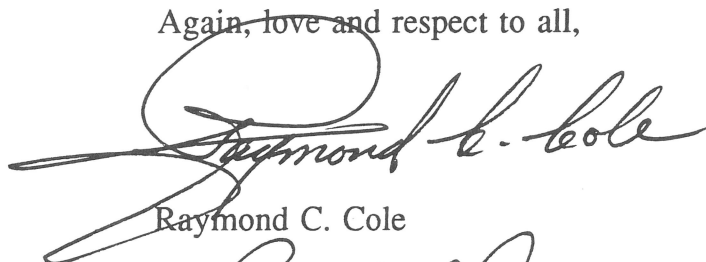 Again, love and respect to all,
Raymond C. Cole
Raymond C. Cole